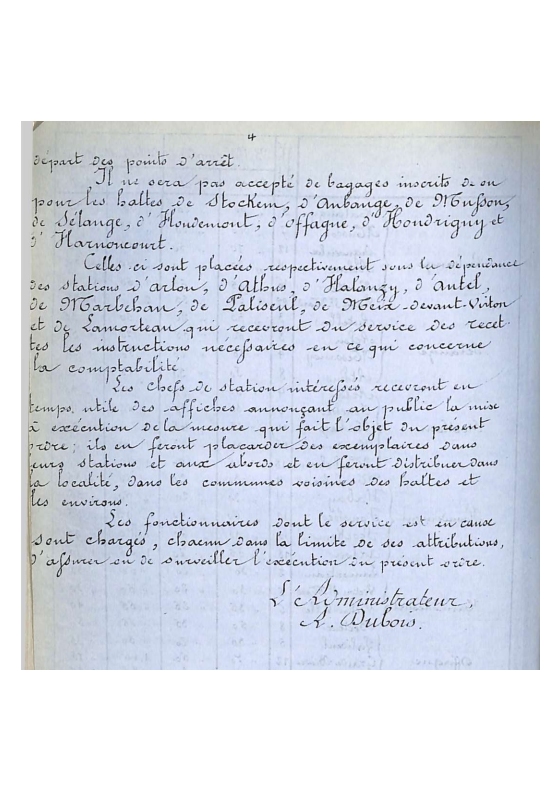 4
départ des points d'arrêt.
Il ne sera pas accepté de bagages inscrits de ou
pour les haltes de Stockem, d'Aubange, de Musson,
de Sélange, d'Houdemont, d'Offagne, d'Houdrigny et
d'Harnoncourt.
Celles-ci sont placées respectivement sous la dépendance
des stations d'Arlon, d'Athus, d'Halanzy, d'Autel,
de Marbehan, de Paliseul, de Meix-devant-Virton
et de Lamorteau qui recevront du service des recet-
tes les instructions nécessaires en ce qui concerne
la comptabilité
Les chefs de station intéressés recevront en
temps utile des affiches annonçant au public la mise
à exécution de la mesure qui fait l'objet du présent
ordre; ils en feront placarder des exemplaires dans
leurs stations et aux abords et en feront distribuer dans
la localité, dans les communes voisines des haltes et
les environs.
Les fonctionnaires dont le service est en cause
sont chargés, chacun dans la limite de ses attributions,
d'assurer ou de surveiller l'exécution du présent ordre.
L'Administrateur,
A. Dubois.